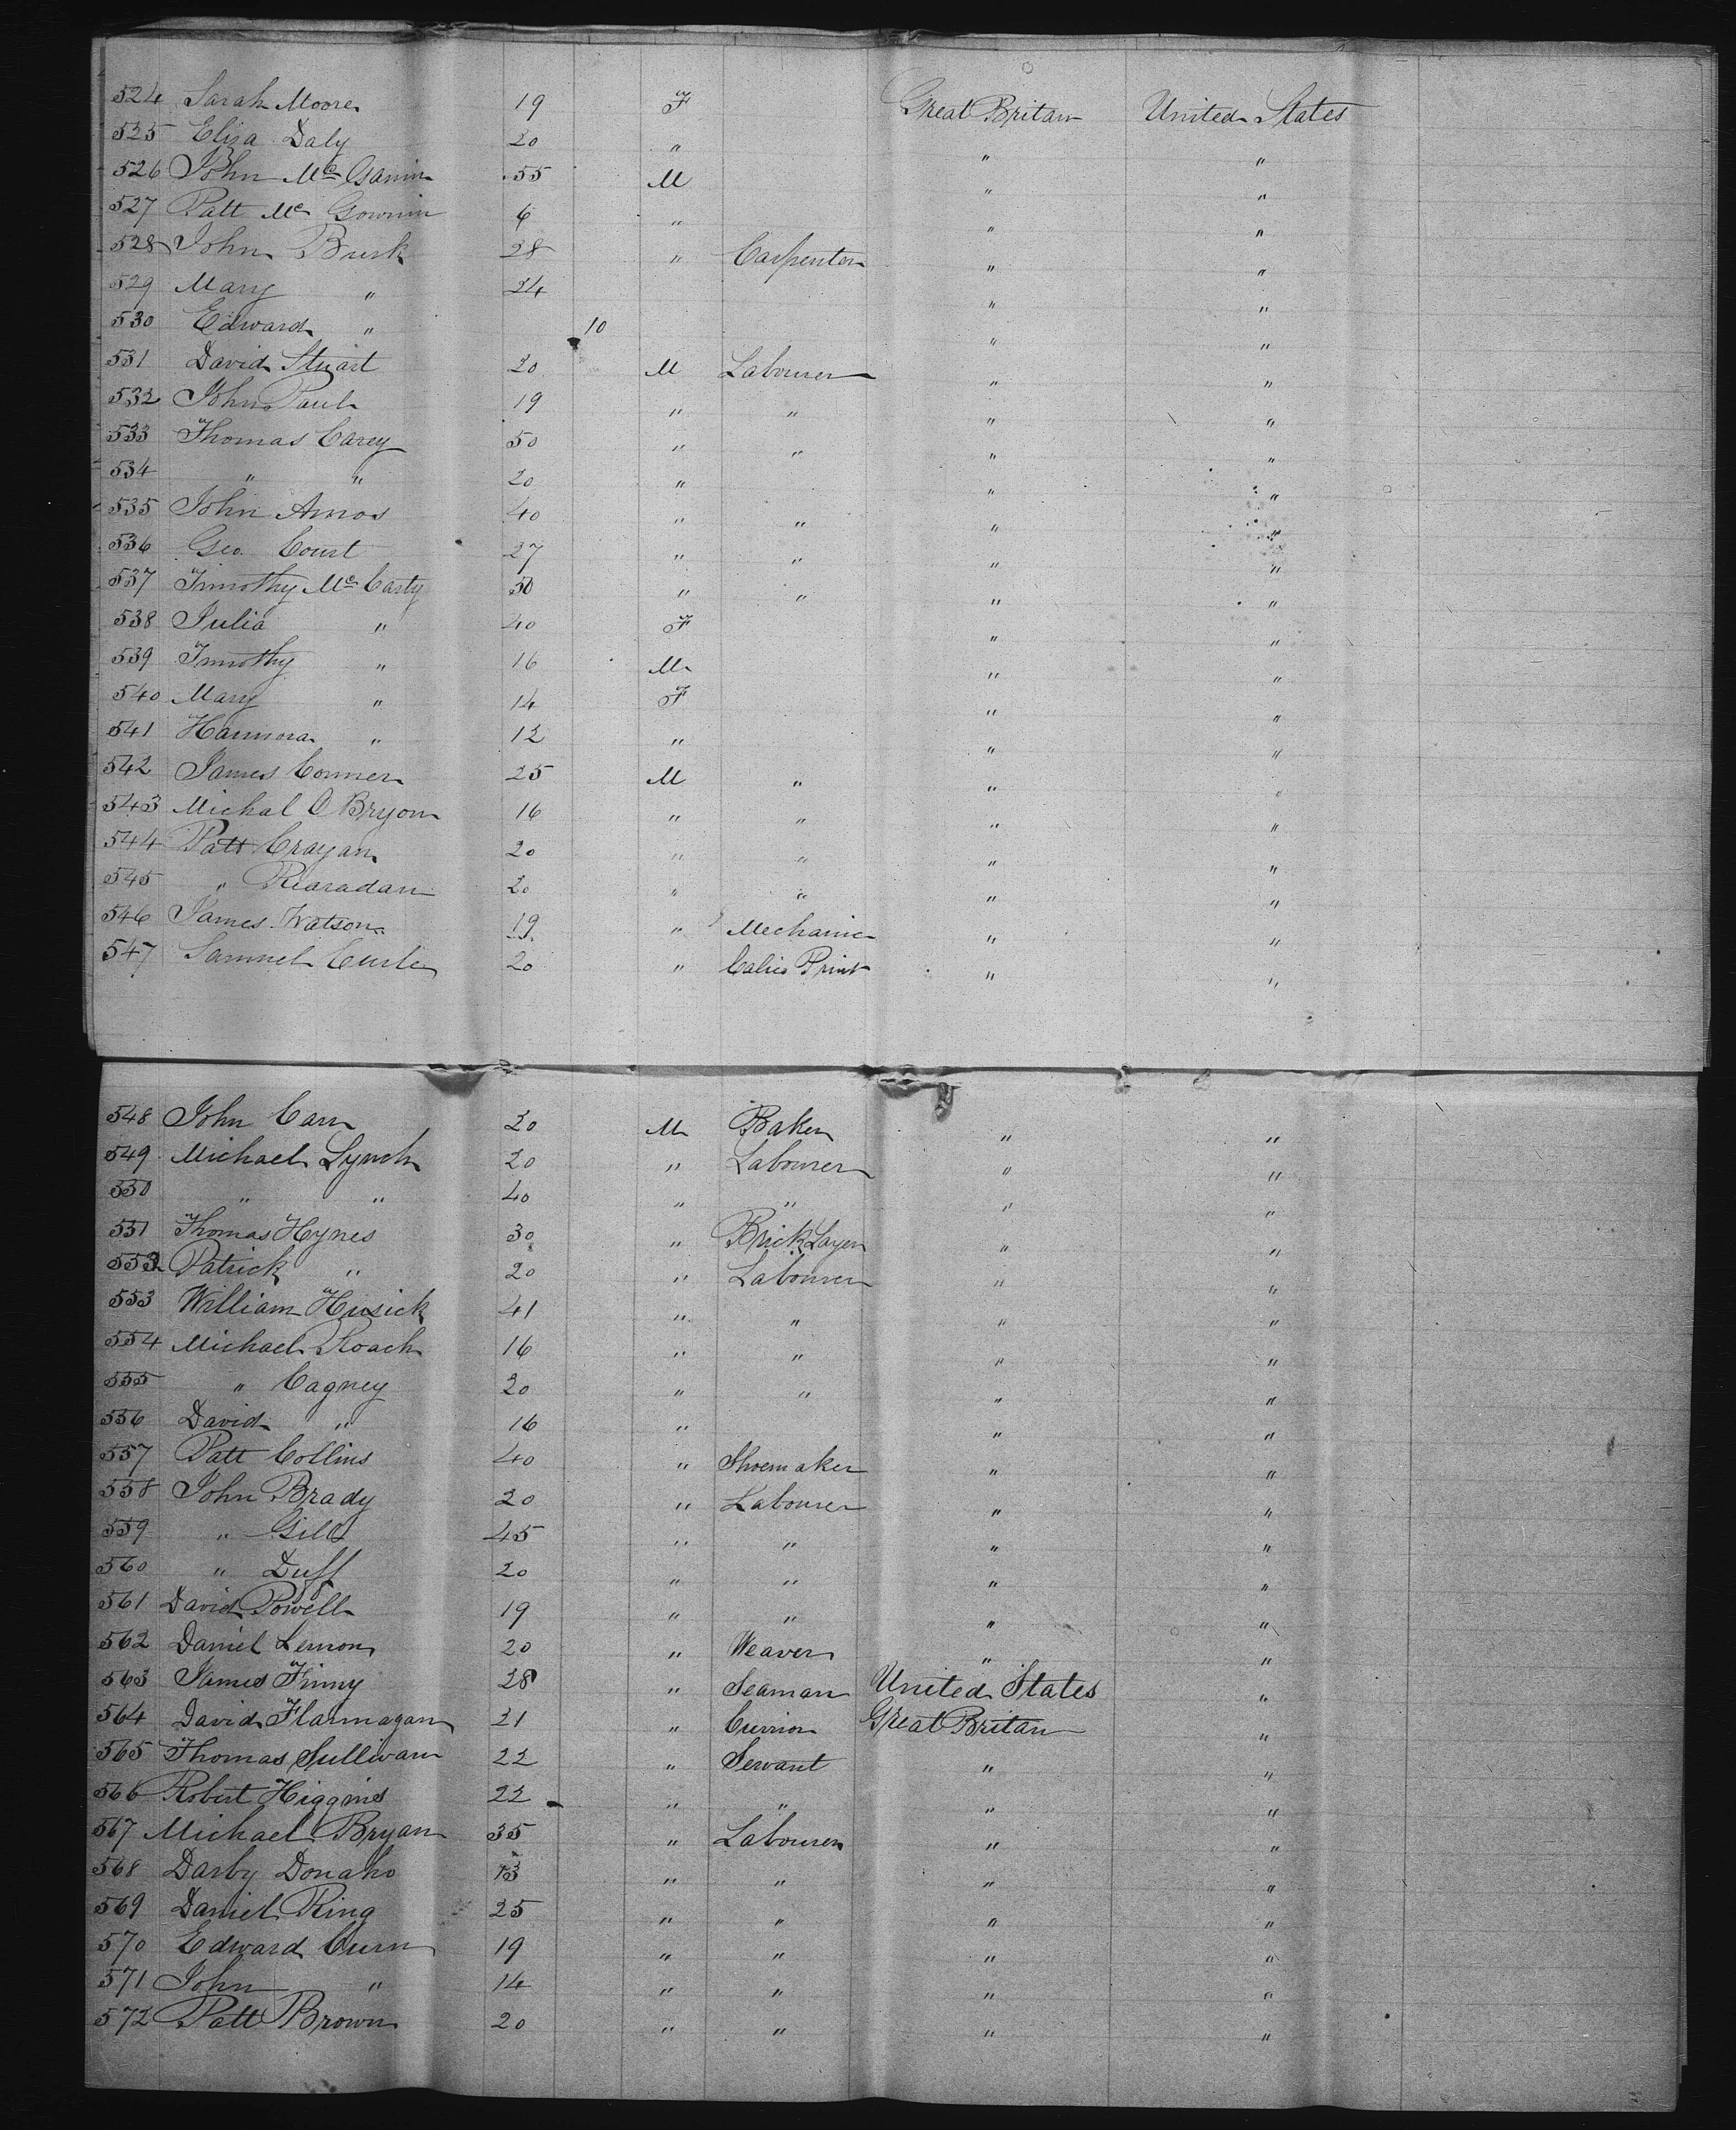 524 Sarah Moore 19 F Great Britain United States
525 Eliza Daly 20 " " "
526 John Mc Gannin 55 M " "
527 Patt Mc Gownin 6 " " "
528 John Burk 28 " Carpenter " "
529 Mary " 24 " "
530 Edward " 10 " "
531 David Stuart 20 M Labourer " "
532 John Paul 19 " " " "
533 Thomas Carey 50 " " " "
534 " " 20 " " "
535 John Amos 40 " " " "
536 Geo. Court 27 " " " "
537 Timothy Mc Carty 50 " " " "
538 Julia " 40 F " "
539 Timothy " 16 M " "
540 Mary " 14 F " "
541 Hannora " 12 " " "
542 James Conner 25 M " " "
543 Michal O Bryon 16 " " " "
544 Patt Crayan 20 " " " "
545 " Rearadan 20 " " " "
546 James Watson 19 " Mechanic " "
547 Samuel Curle 20 " Calico Print " "
548 John Carr 20 M Baker " "
549 Michael Lynch 20 " Labourer " "
550 " " 40 " " " "
551 Thomas Hynes 30 " Brick Layer " "
552 Patrick " 20 " Labourer " "
553 William Husick 41 " " " "
554 Michael Roach 16 " " " "
555 " Cagney 20 " " " "
556 David " 16 " " "
557 Patt Collins 40 " Shoemaker " "
558 John Brady 20 " Labourer " "
559 " Gill 45 " " " "
560 " Duff 20 " " " "
561 David Powell 19 " " " "
562 Daniel Lemon 20 " Weaver " "
563 James Finny 28 " Seaman United States "
564 David Flannagan 21 " Currior Great Britan "
565 Thomas Sullivan 22 " Servant " "
566 Robert Higgins 22 " " " "
567 Michael Bryan 35 " Labourer " "
568 Darby Donaho 13 " " " "
569 Daniel Ring 25 " " " "
570 Edward Curn 19 " " " "
571 John " 14 " " " "
572 Patt Brown 20 " " " "